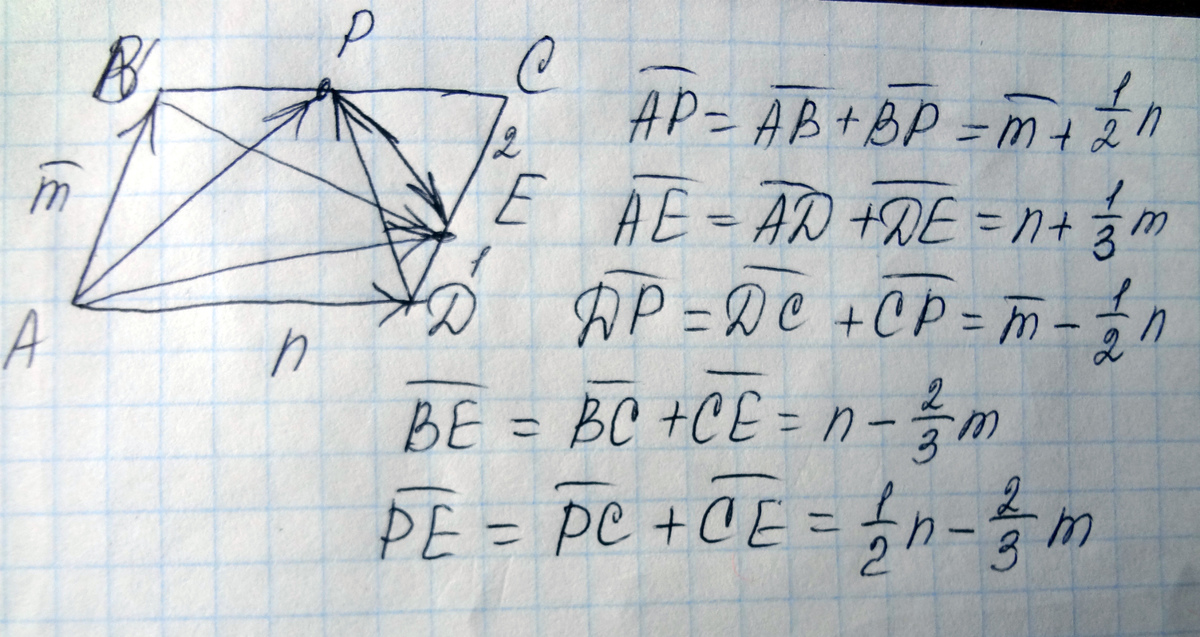 P
B
C
2
m̅
E
1
A
n
D
A̅P̅ = A̅B̅ + B̅P̅ = m̅ + 1/2 n
A̅E̅ = A̅D̅ + D̅E̅ = n + 1/3 m
D̅P̅ = D̅C̅ + C̅P̅ = m̅ - 1/2 n
B̅E̅ = B̅C̅ + C̅E̅ = n - 2/3 m
P̅E̅ = P̅C̅ + C̅E̅ = 1/2 n - 2/3 m